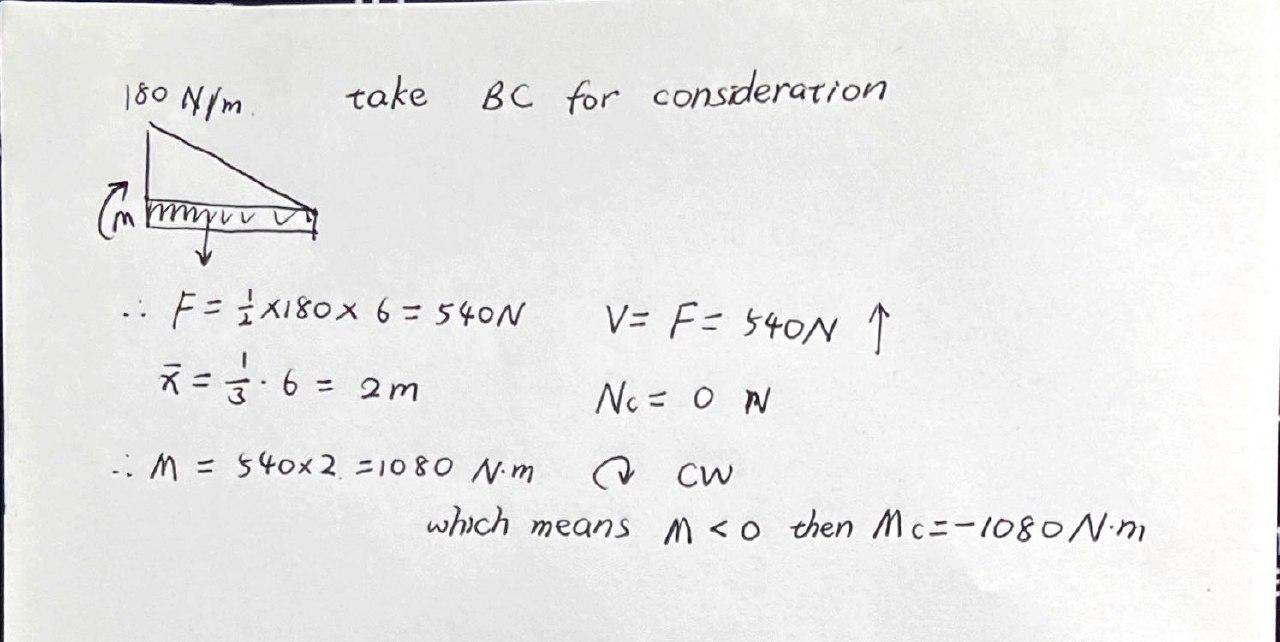 180 N/m. take BC for consideration
m
∴ F = 1/2 × 180 × 6 = 540N V = F = 540N ↑
x̄ = 1/3 · 6 = 2m Nc = 0 N
∴ M = 540×2 = 1080 N·m ↻ CW
which means M < 0 then Mc = -1080 N·m